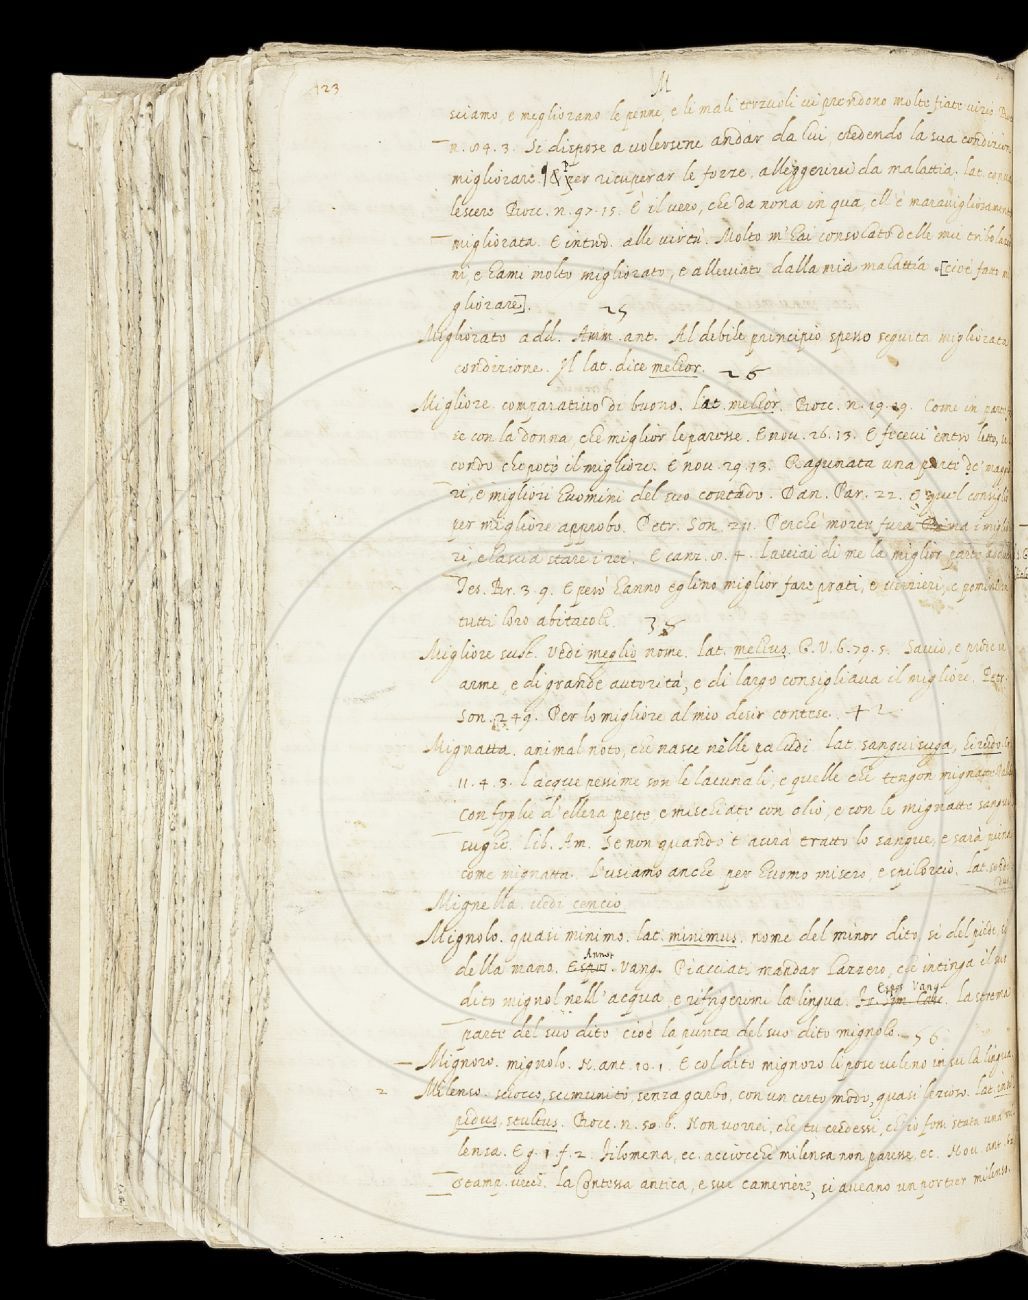 123
M
sciamo, e megliorano le penne, e li mali terzuoli ui prendono molte fiate uizio. Bocc
n. 84. 3. Si dispose a uolersene andar da lui, credendo la sua condizion
migliorare. § per ricuperar le forze, alleggerirsi da malattia. lat. conua
lescere Bocc. n. 97. 15. E il vero, che da nona in qua, ell'è marauigliosamente
migliorata. E introd. alle virtù. Molto m'hai consolato delle mie tribolazio
ni, e hami molto migliorato, e alleuiato dalla mia malattia [cioè fatto mi
gliorare].
25
Migliorato add. Amm. ant. Al debile principio spesso seguita migliorata
condizione. Il lat. dice melior.
26
Migliore. comparatiuo di buono. lat. melior. Bocc. n. 19. 29. Come in
se con la donna, che miglior le paresse. E nou. 26. 13. E feceui entro letto, se
condo che potè il migliore. E nou. 29. 13. Ragunata una parte de' maggio
ri, e migliori huomini del suo contado. Dan. Par. 22. E quel consiglio
per migliore approbo. Petr. Son. 211. Perchè morte fura Prima i miglio
ri, e lascia stare i rei. E canz. 8. 4. Lasciai di me la miglior parte
Tes. Br. 3. 9. E però hanno eglino miglior fare prati, e uerzieri, e pomieri
tutti loro abitacoli.
35
Migliore sust. Vedi meglio nome. lat. melius. G. V. 6. 79. 5. Sauio, e prode in
arme, e di grande autorità, e di largo consigliaua il migliore. Petr.
Son. 249. Per lo migliore al mio desir contese. 42
Mignatta. animal noto, che nasce nelle paludi. lat. sanguisuga, hirudo.
11. 4. 3. l'acque pessime son le lacunali, e quelle che tengon mignatte
con foglie d'ellera peste, e mischiate con olio, e con le mignatte sangui
sughe. lib. Am. Se non quando t'aurà tratto lo sangue, e sarà piena
come mignatta. L'usiamo anche per huomo misero, e spilorcio. lat. sordi
dus
Mignella. vedi cencio
Mignolo. quasi minimo. lat. minimus. nome del minor dito, sì del piede, sì
della mano. Espos. Annot. Vang. Piacciati mandar Lazzero, che intinga il suo
dito mignol nell'acqua, e rifrigerimi la lingua. Espos. Vang. la strema
parte del suo dito cioè la punta del suo dito mignolo. 76
Mignoro. mignolo. N. ant. 10. 1. E col dito mignoro li pose ueleno in su la lingua
2 Milenso. sciocco, scimunito, senza garbo, con un certo modo, quasi lezioso. lat. insi
pidus, stultus. Bocc. n. 50. 6. Non uorrei, che tu credessi, ch'io fossi stata una mi
lensa. E g. 1. f. 2. Filomena, ec. acciocchè milensa non paresse, ec. Nou. ant.
Stamp. vecc. La Contessa antica, e sue cameriere, si aueano un portier milenso.